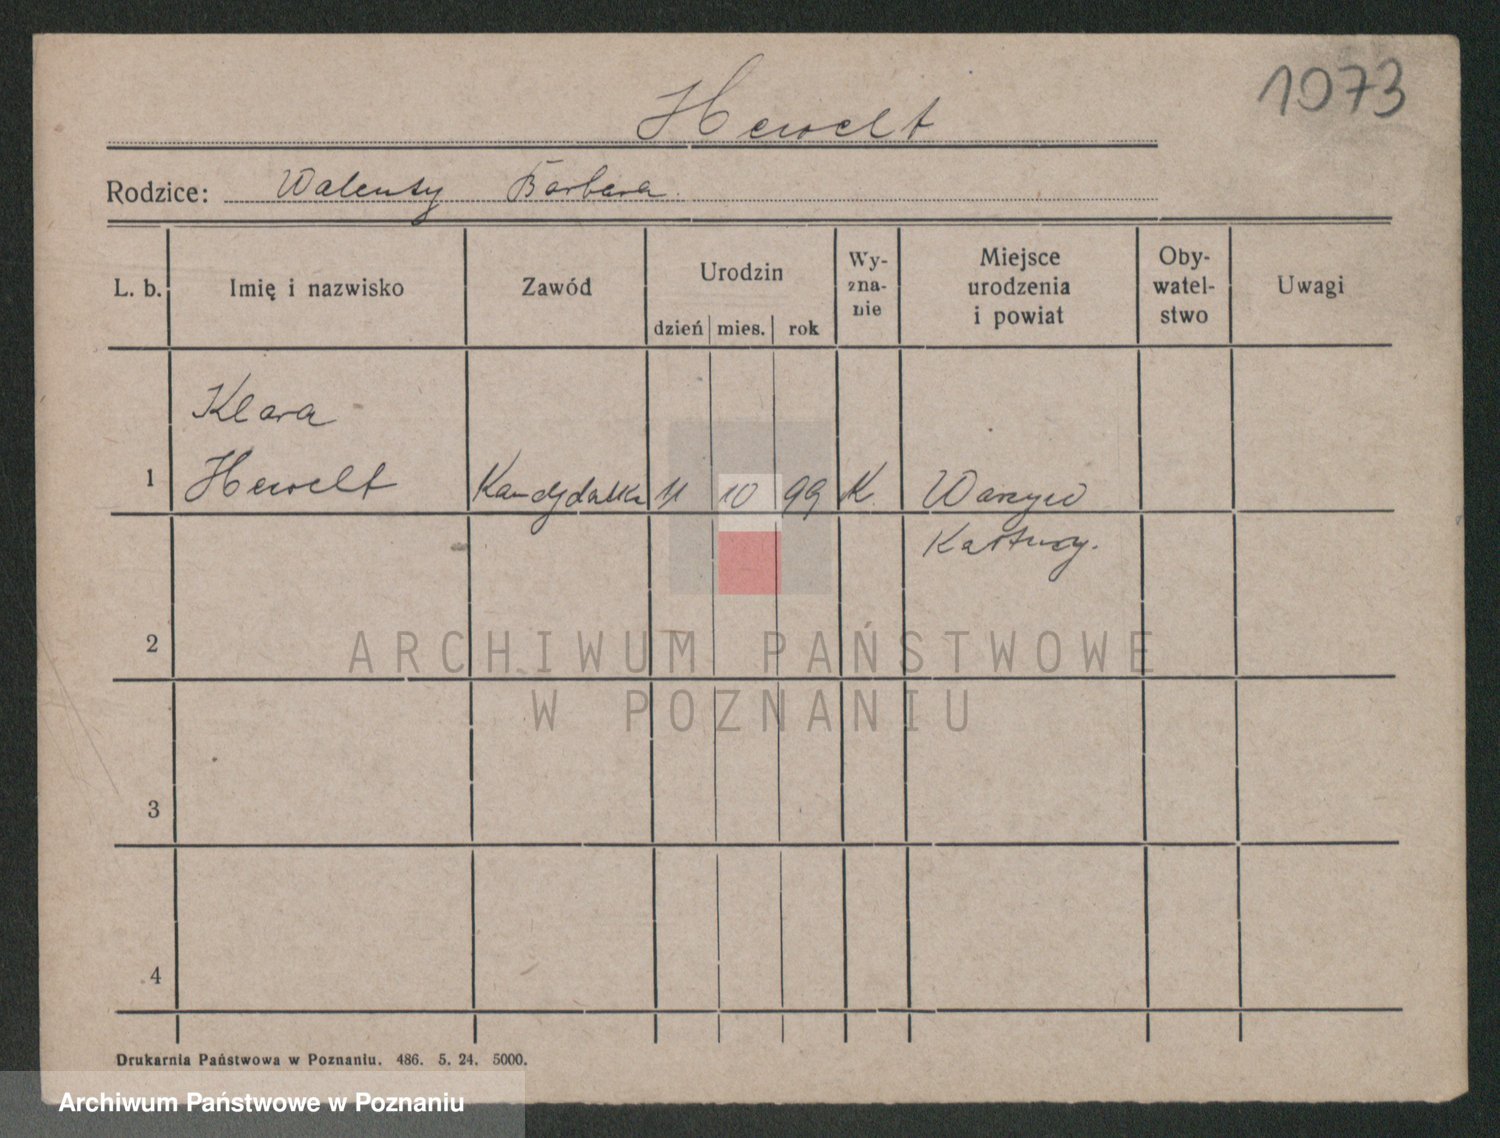 1073
Hewelt
Rodzice: Walenty Barbara.
L. b. Imię i nazwisko Zawód Urodzin dzień mies. rok Wy-zna-nie Miejsce urodzenia i powiat Oby-watel-stwo Uwagi
Klara
1 Hewelt Kandydatka 11 10 99 K.
Kartuzy.
2
ARCHIWUM PAŃSTWOWE
W POZNANIU
3
4
Drukarnia Państwowa w Poznaniu. 486. 5. 24. 5000.
Archiwum Państwowe w Poznaniu